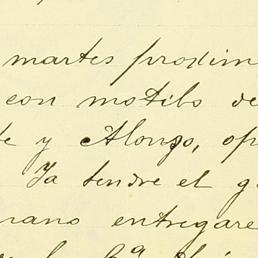 martes proxim
con motibo de
te y Alonzo, op
Ya tendre el g
rano entregare